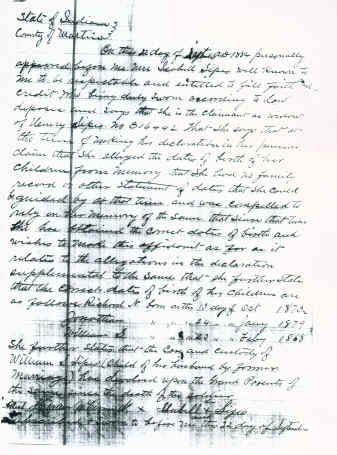 State of Indiana }
County of Martin }
On this 22 day of Sept AD 1886 personally
appeared before me Mrs Isabell Sipes well known to
me to be respectable and entitled to full faith and
credit Who being duly sworn according to law
deposes and says that she is the claimant as widow
of Henry Sipes No 316442 That she says that at
the time of making her declaration in her pension
claim that She alleged the dates of birth of her
children from memory that She had no family
record or other statement of dates that she could
be guided by at that time and was compelled to
rely on her memory of the same that since that time
she has obtained the correct dates of birth and
wishes to make this affidavit as far as it
relates to the allegations in the declaration
supplemental to the same that she further states
that the correct dates of birth of his children are
as follows Richard N born on the 10 day of Oct 1872
" " 24 " Jany 1879
William S " " " Feby 1868
She further states that the care and custody of
William S Sipes (child of his husband by former
marriage) has devolved upon the Grand Parents of
the since the death of the soldier
Isabell Sipes
to before me this 22 day of Septem